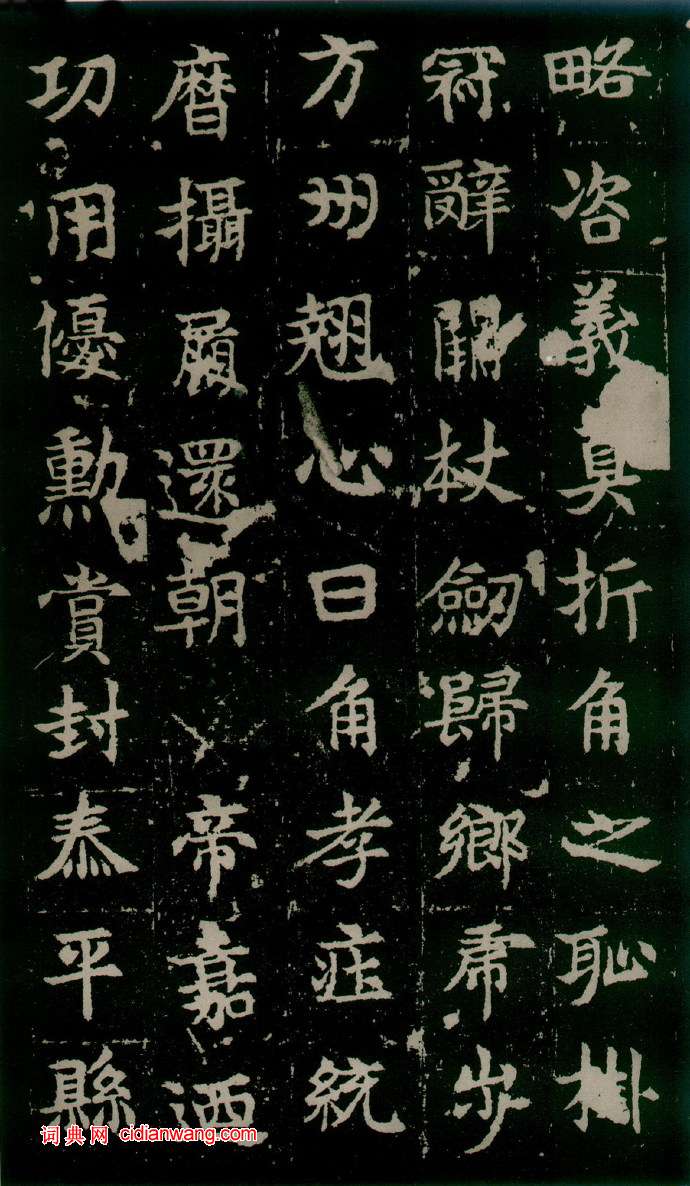 略咨義折角之恥掛
冠辭闕杖劒歸鄉虎步
方州翹心日角孝莊統
曆攝履還朝帝嘉迺
功用優勳賞封泰平縣
词典网 cidianwang.com